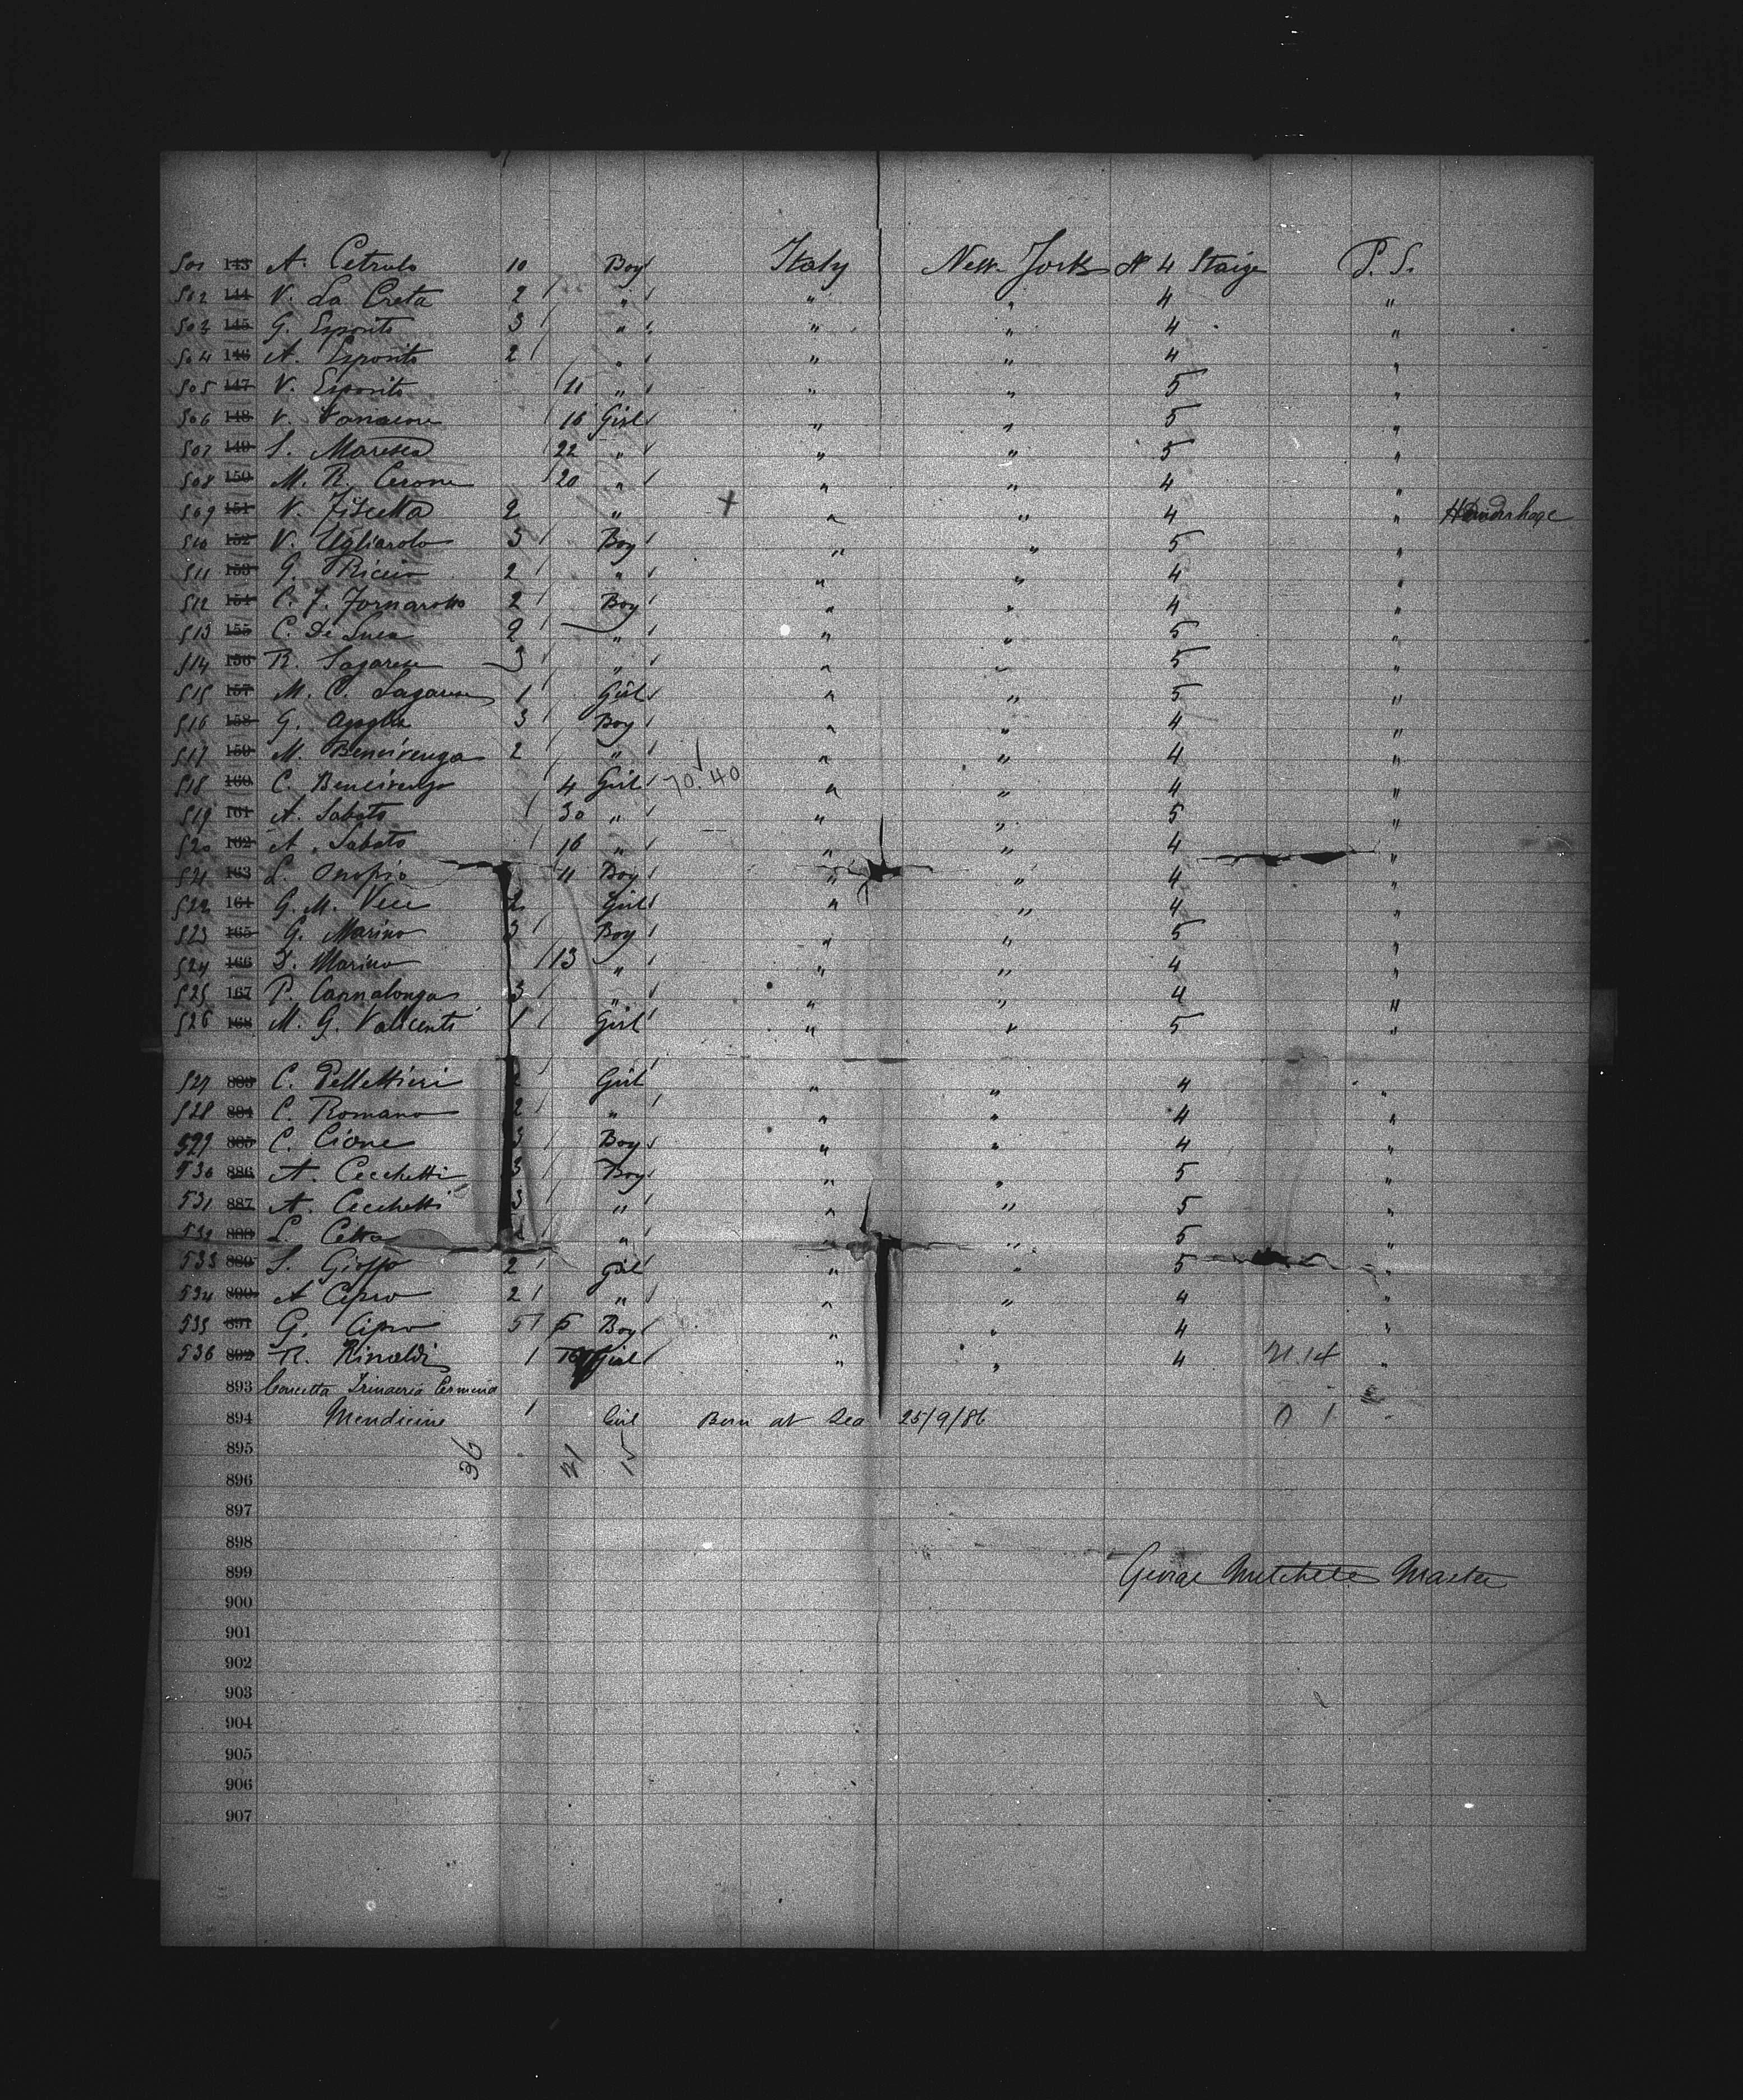 501 143 A. Cetrulo 10 Boy Italy New York N 4 Staige P. S.
502 144 V. La Creta 2 " " " 4 "
503 145 G. Esposito 3 " " " 4 "
504 146 A. Esposito 2 " " " 4 "
505 147 V. Esposito 11 " " " 5 "
506 148 V. 16 Girl " " 5 "
507 149 S. Maresca 22 " " " 5 "
508 150 M. R. Cerone 20 " " " 4 "
509 151 V. Fiscetta 2 " + " " 4 "
510 152 V. Ugliarolo 3 Boy " " 5 "
511 153 G. Riccio 2 " " " 4 "
512 154 C. F. Fornarotto 2 Boy " " 4 "
513 155 C. De Luca 2 " " " 5 "
514 156 R. Sagarese 3 " " " 5 "
515 157 M. C. Sagarese 1 Girl " " 5 "
516 158 G. 3 Boy " " 4 "
517 159 M. Bencivenga 2 " " " 4 "
518 160 C. Bencivenga 4 Girl 70.40 " " 4 "
519 161 A. Sabato 30 " " " 5 "
520 162 A. Sabato 16 " " " 4 "
521 163 L. Onofrio 11 Boy " " 4 "
522 164 G. M. Vece 2 Girl " " 4 "
523 165 G. Marino 3 Boy " " 5 "
524 166 D. Marino 13 " " " 4 "
525 167 P. Cannalonga 3 " " " 4 "
526 168 M. G. Valicenti 1 Girl " " 5 "
527 883 C. Pellettieri 2 Girl " " 4 "
528 884 C. Romano 2 " " " 4 "
529 885 C. Cione 3 Boy " " 4 "
530 886 A. Cecchetti 3 Boy " " 5 "
531 887 A. Cecchetti 3 " " " 5 "
532 888 L. Cetta " " " 5 "
533 889 S. Gioffo 2 Girl " " 5 "
534 890 A Cipro 2 " " " 4 "
535 891 G. Cipro 5 Boy " " 4 "
536 892 R. Rinaldi Girl " " 4 21.14 "
893 Concetta Trinacria
894 Mendicine Girl Born at Sea 25/9/86 0 1
895 36 21 15
896
897
898
899 George Mitchell Master
900
901
902
903
904
905
906
907